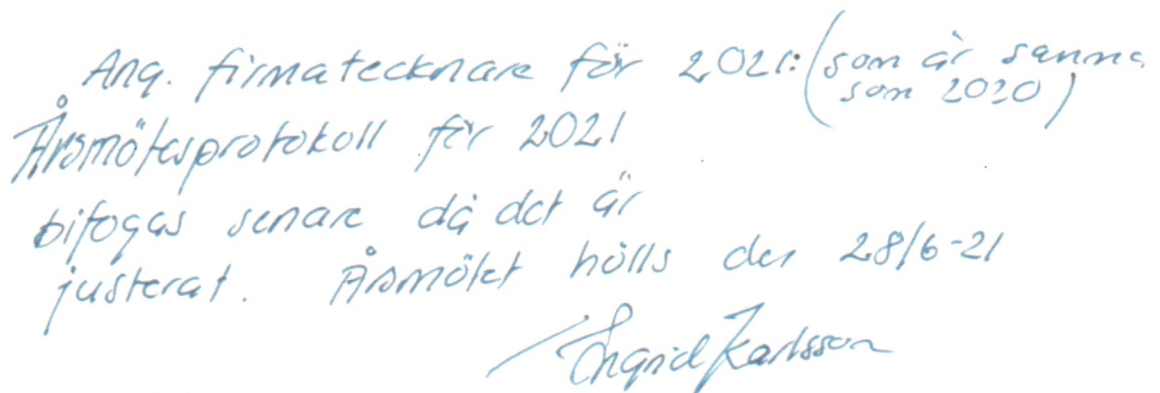 Ang. firmatecknare för 2021: (som är samma
som 2020)
Årsmötesprotokoll för 2021
bifogas senare då det är
justerat. Årsmötet hölls den 28/6-21
/Ingrid Karlsson